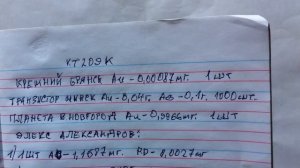 КТ209К
КРЕМНИЙ БРЯНСК Au-0,00087мг. 1шт
ТРАНЗИСТОР МИНСК Au-0,04г. Ag-0,1г. 1000шт.
ПЛАНЕТА Н НОВГОРОД Au-0,9866мг. 1шт
ЭЛЕКС АЛЕКСАНДРОВ:
1) 1шт Ag-1,1687мг. PD-8,0027мг